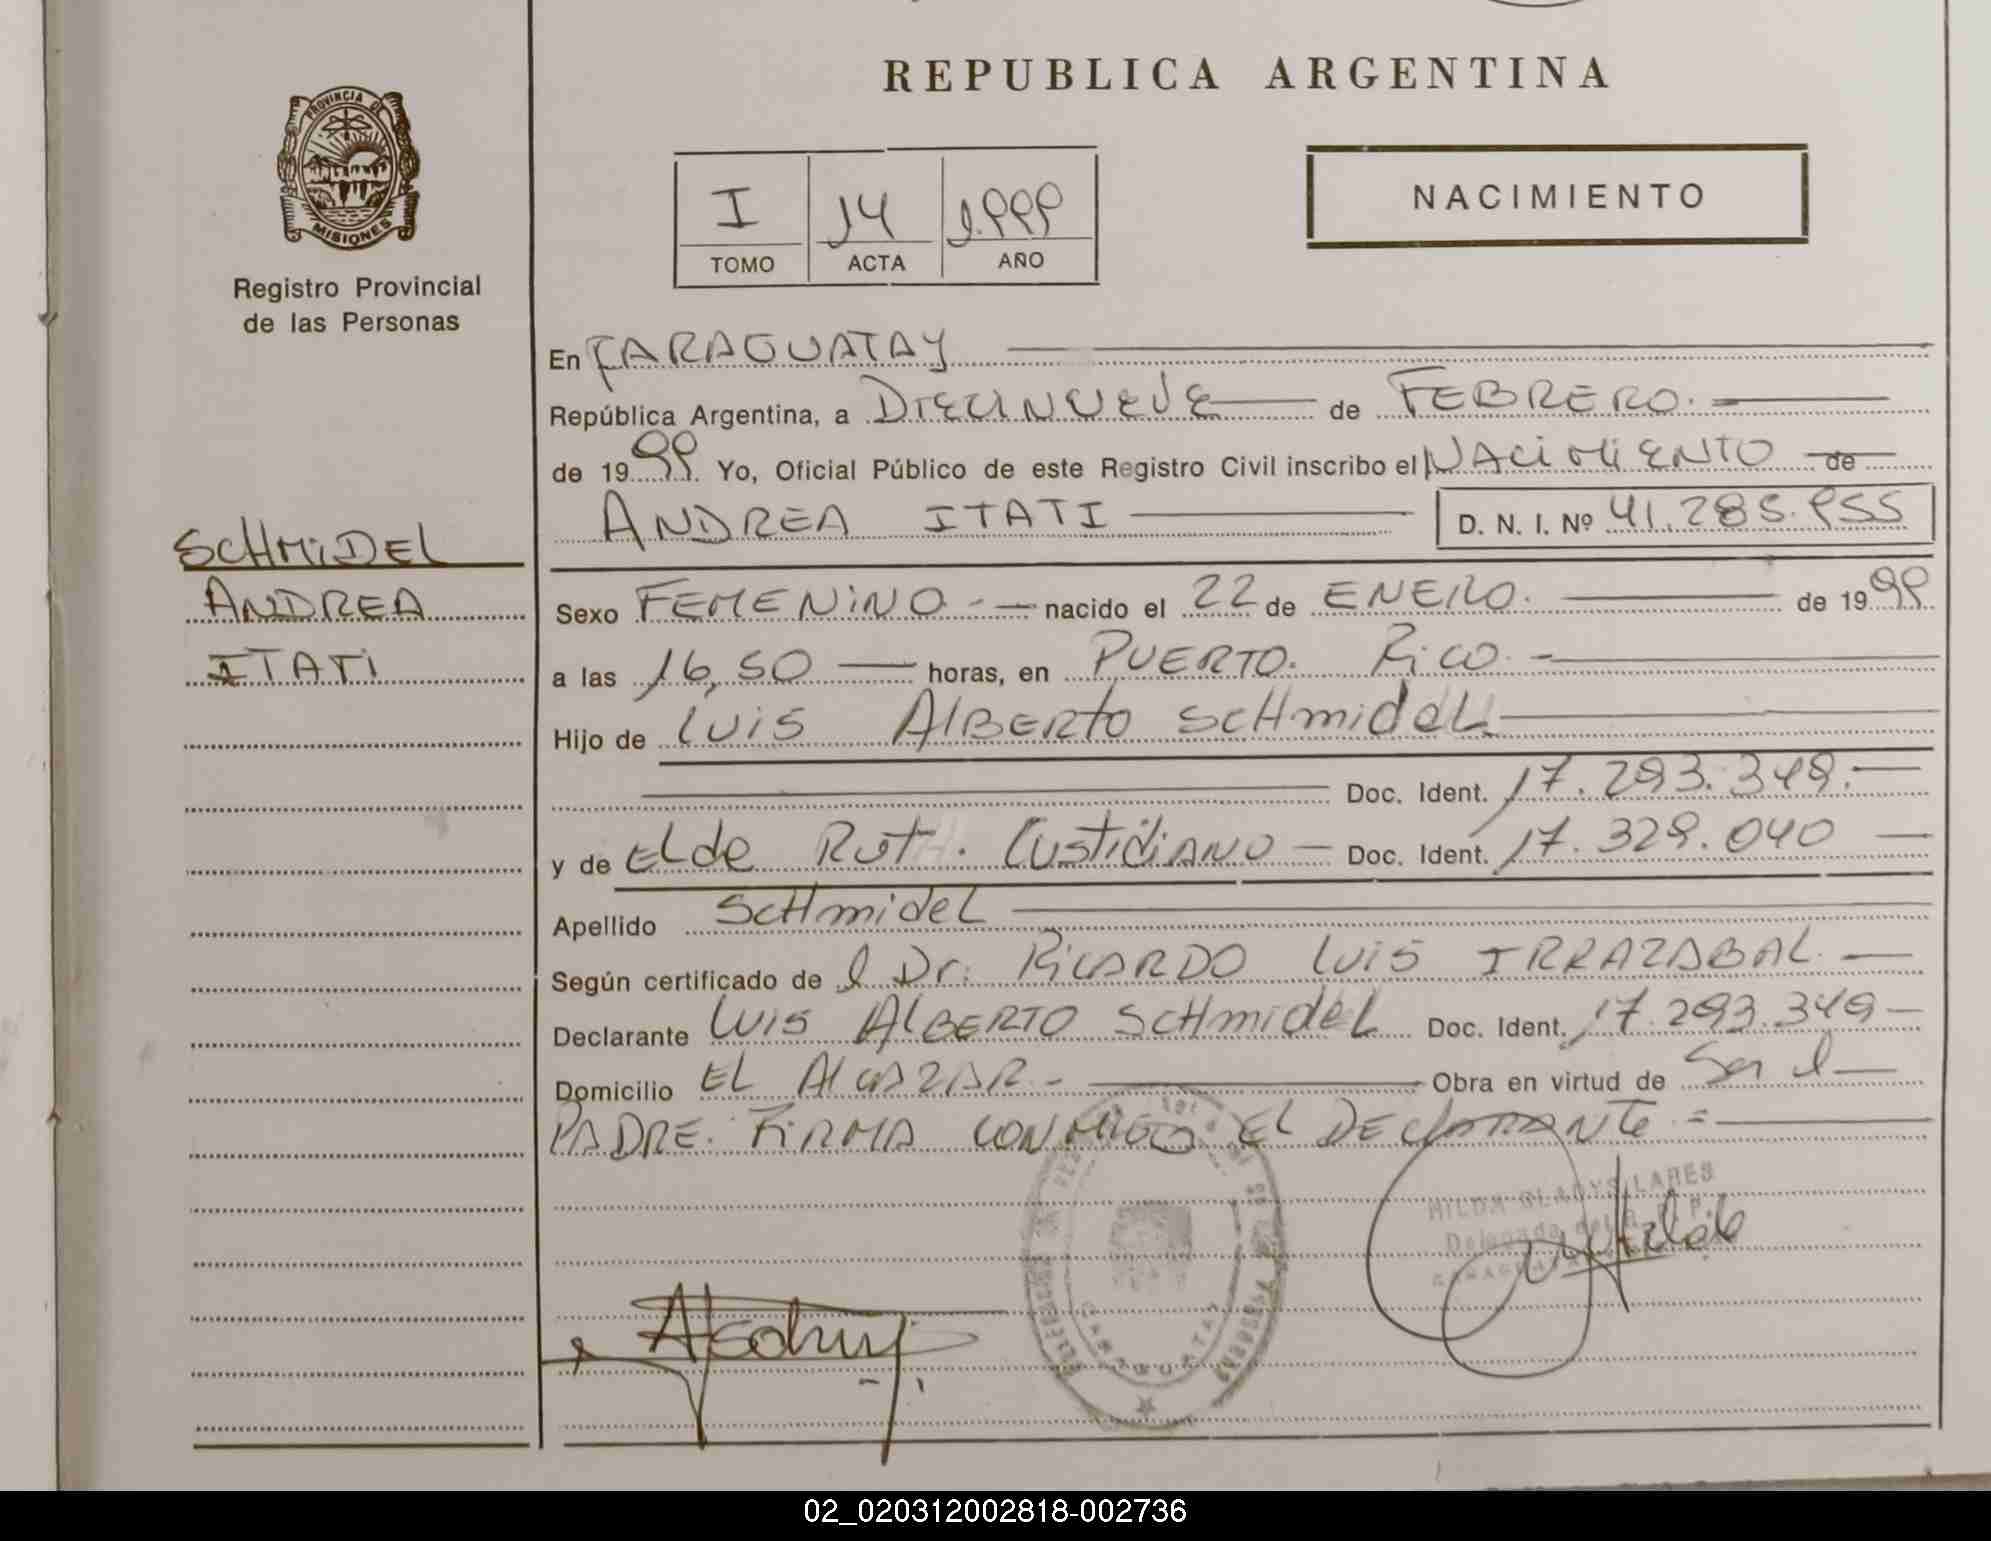 REPUBLICA ARGENTINA
PROVINCIA DE MISIONES
Registro Provincial
de las Personas
I 14 1.999
TOMO ACTA AÑO
NACIMIENTO
En CARAGUATAY
República Argentina, a DIECINUEVE de FEBRERO.
de 1999. Yo, Oficial Público de este Registro Civil inscribo el NACIMIENTO de
ANDREA ITATI D. N. I. Nº 41.285.955
SCHMIDEL
ANDREA
ITATI
Sexo FEMENINO.- nacido el 22 de ENERO. de 1999
a las 16,50 horas, en PUERTO. RICO.-
Hijo de LUIS ALBERTO SCHMIDEL
Doc. Ident. 17.293.349.-
y de ELDE RUT. CUSTIDIANO Doc. Ident. 17.329.040
Apellido SCHMIDEL
Según certificado de l Dr. RICARDO LUIS IRRAZABAL.
Declarante LUIS ALBERTO SCHMIDEL Doc. Ident. 17.293.349
Domicilio EL ALCAZAR.- Obra en virtud de Ser el
PADRE. FIRMA CONMIGO EL DECLARANTE.=
HILDA GLADYS LARES
CARAGUATAY
02_020312002818-002736